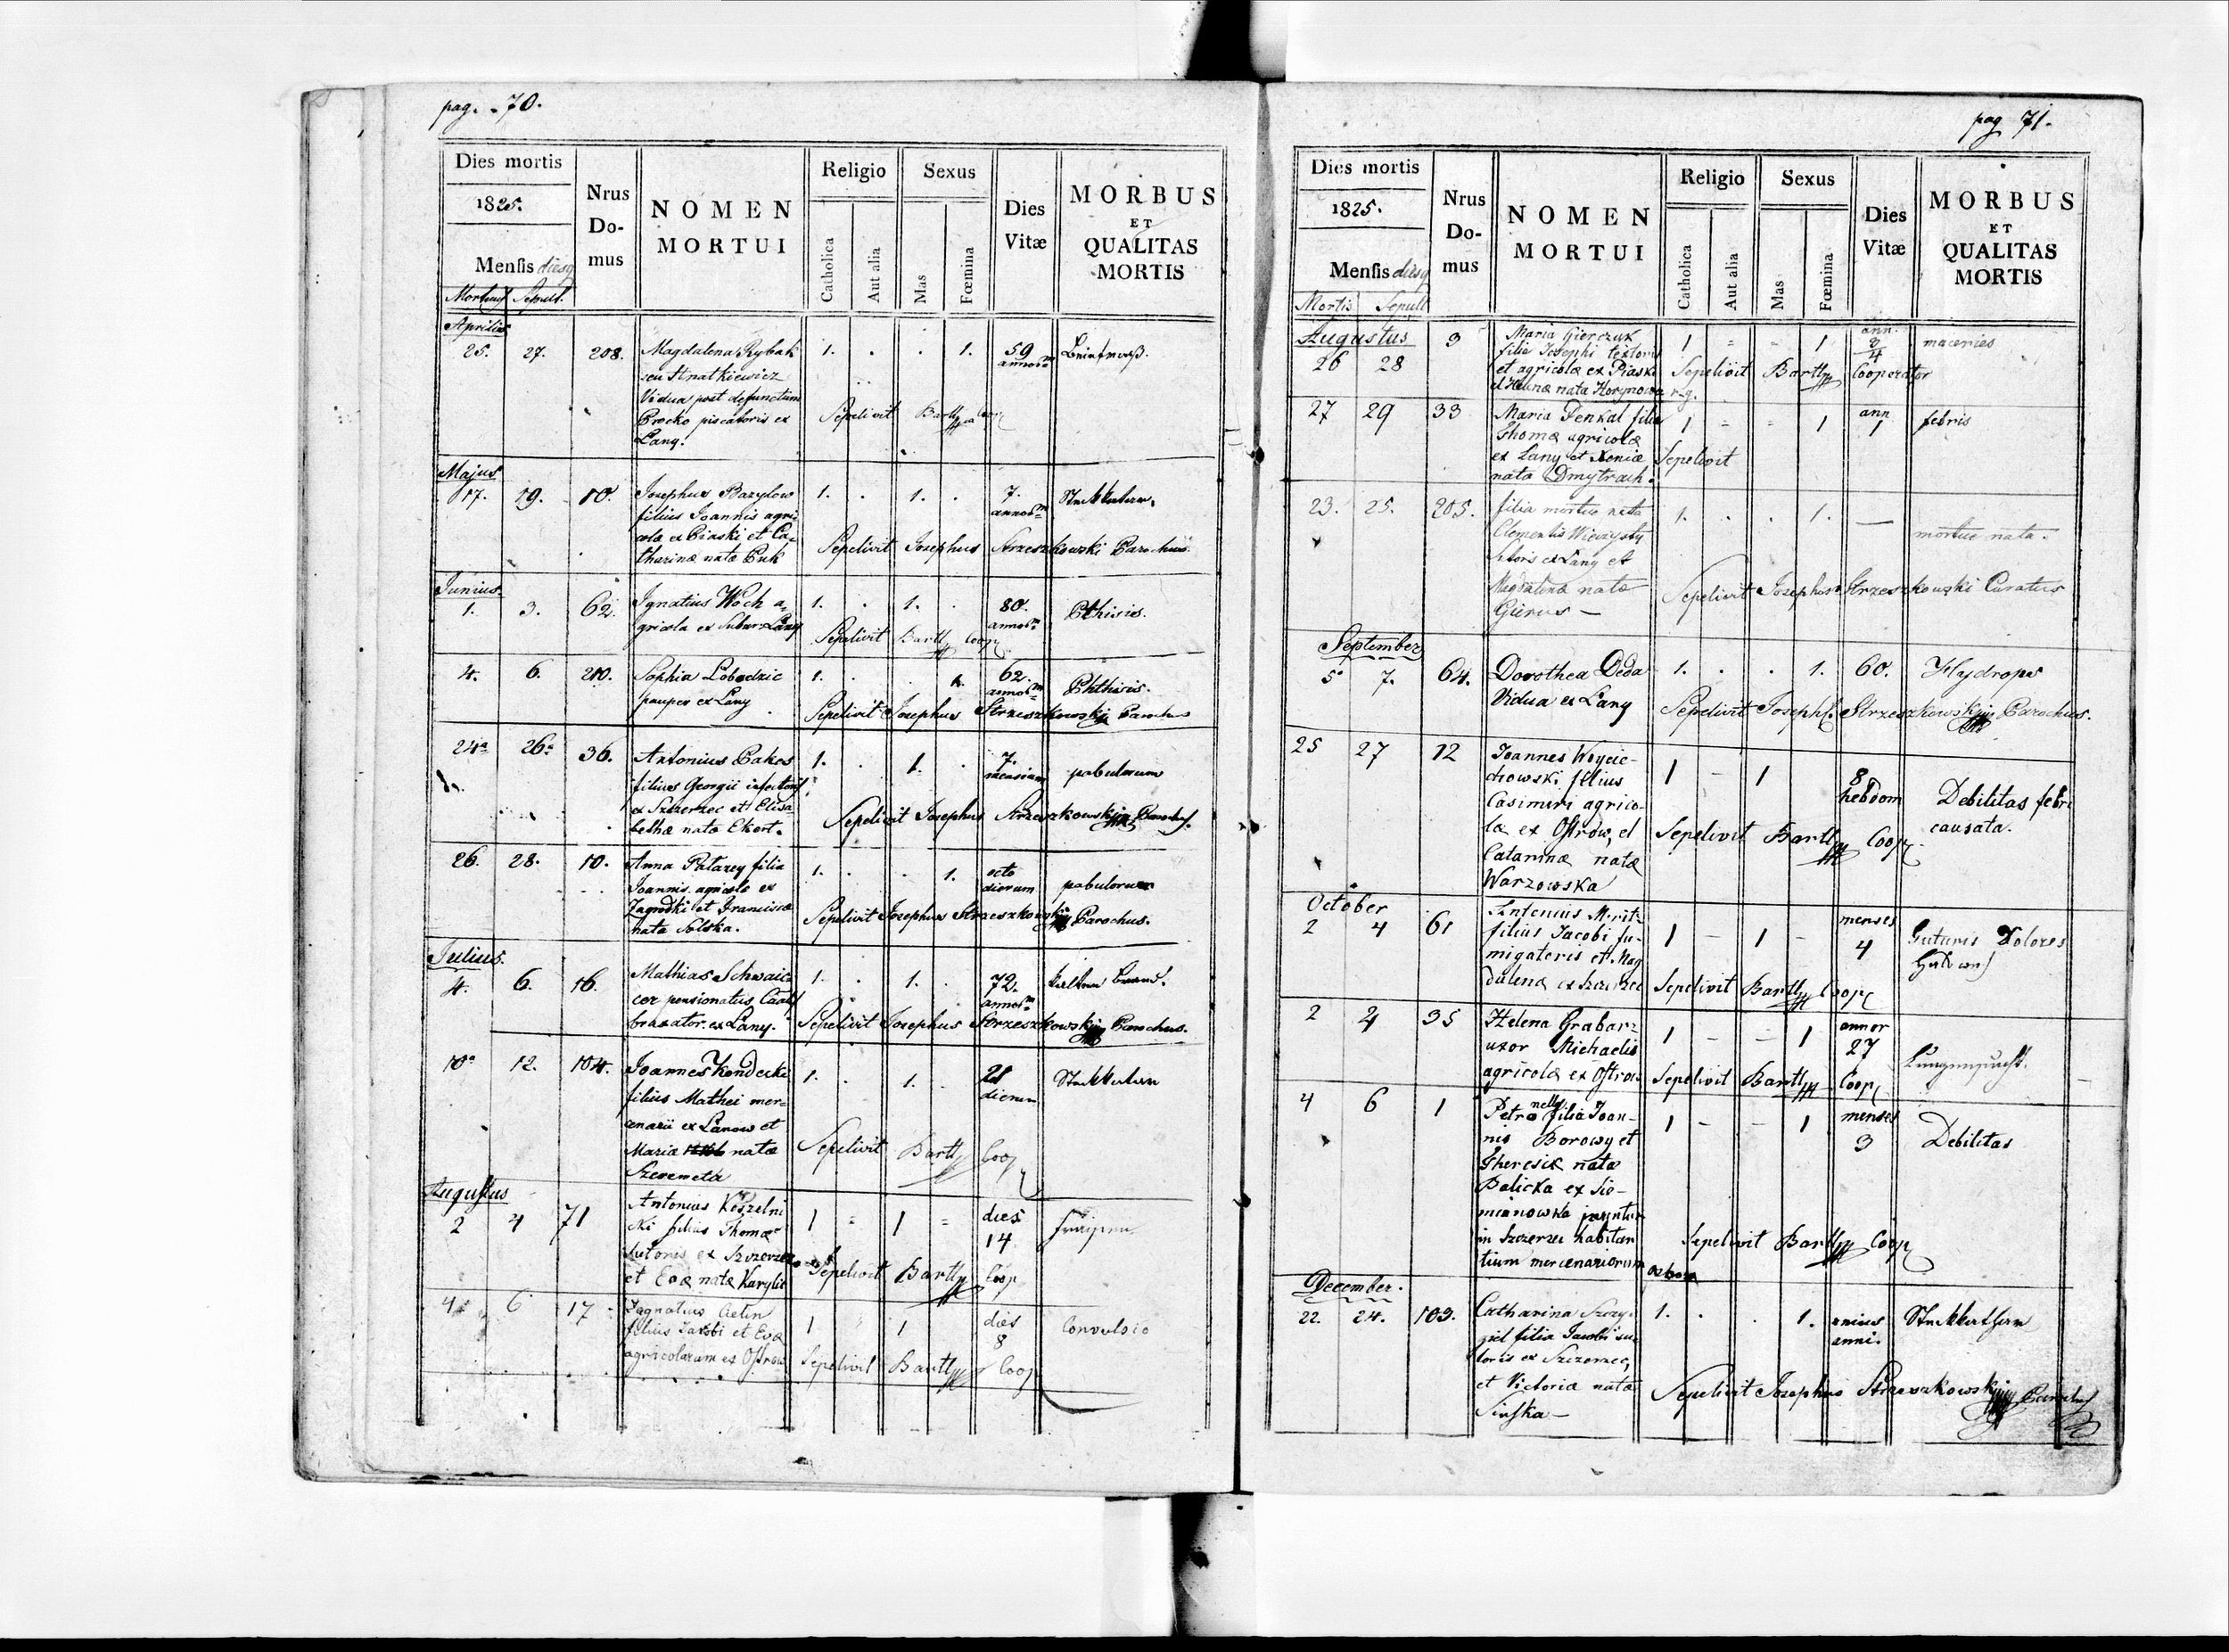 pag. 70.
Dies mortis
1825.
Mensis diesq
Mortis Sepult.
Nrus Do-mus
NOMEN MORTUI
Religio
Catholica
Aut alia
Sexus
Mas
Fœmina
Dies Vitæ
MORBUS ET QUALITAS MORTIS
Aprilis
25. 27. 208. Magdalena Rybak 1. . . 1. 59 annor
seu Hnatkiewicz
Vidua post defunctum
Procko piscatoris ex Sepelivit Bartl Coop
Lany.
Majus
17. 19. 10. Josephus Bazylow 1. . 1. . 7. annor
filius Joannis agri-
colæ ex Piaski et Ca-
tharinæ nata Puk Sepelivit Josephus Strzeszkowski Parochus.
Junius
1. 3. 62. Ignatius Woch a- 1. . 1. . 80. annor Pthisis.
gricola ex Lany Sepelivit Bartl Coop
4. 6. 210. Sophia Lobodzic 1. . . 1. 62. annor Phthisis.
pauper ex Lany Sepelivit Josephus Strzeszkowski Parochus
24a 26a 36. Antonius Pakos 1. . 1. . 7. mensium pabulorum
filius Georgii
ex Szczerzec et Elisa-
bethæ nata Ekert. Sepelivit Josephus Strzeszkowski Parochus.
26. 28. 10. Anna filia 1. . . 1. octo dierum pabulorum
Joannis agricolæ ex
Zagrodki et Franciscæ
nata Solska. Sepelivit Josephus Strzeszkowski Parochus.
Julius.
4. 6. 16. Mathias Schwaic- 1. . 1. . 72. annor
cer pensionatus
ex Lany. Sepelivit Josephus Strzeszkowski Parochus.
10a 12. 104. Joannes Kondecki 1. . 1. . 21 dierum
filius Mathei mer-
cenarii ex Lanow et
Maria nata Sepelivit Bartl Coop
Szeremeta
Augustus
2 4 71 Antonius Koszelni 1 = 1 = dies 14
cki filius Thomæ
sutoris ex Szczerzec
et Eva nata Sepelivit Bartl Coop
4 6 17 Ignatius 1 1 dies 8 Convulsio
filius Jacobi et Eva
agricolarum ex Ostrow Sepelivit Bartl Coop
pag 71.
Dies mortis
1825.
Mensis diesq
Mortis Sepult
Nrus Do-mus
NOMEN MORTUI
Religio
Catholica
Aut alia
Sexus
Mas
Fœmina
Dies Vitæ
MORBUS ET QUALITAS MORTIS
Augustus
26 28 3 Maria Gierczak 1 = = 1 ann. macenies
filia Josephi textoris
et agricolæ ex Piaski Sepelivit Bartl Cooperator
et Helenæ nata Horynowa
27 29 33 Maria Denkal filia 1 = = 1 ann 1 febris
Thomæ agricolæ
ex Lany et Xeniæ Sepelivit
nata Dmytrach.
23. 25. 205. filia mortue nata 1. . . 1. — mortue nata.
Clementis
sutoris ex Lany et
Magdalenæ nata Sepelivit Josephus Strzeszkowski Curatus
Gierus —
September
5 7. 64. Dorothea Deda 1. . . 1. 60. Hydrops
Vidua ex Lany Sepelivit Joseph Strzeszkowski Parochus.
25 27 12 Joannes Woycie- 1 – 1 8 hebdom Debilitas febri causata.
chowski filius
Casimiri agrico-
læ ex Ostrow, et Sepelivit Bartl Coop
Catarinæ natæ
Warzowska
October
2 4 61 Antonius 1 – 1 – menses 4 Guturis Dolores
filius Jacobi fu-
migatoris et Mag
dalena ex Sepelivit Bartl Coop
2 4 35 Helena Grabarz 1 – – 1 annor 27 Lungensucht.
uxor Michaelis
agricolæ ex Ostrow Sepelivit Bartl Coop
4 6 1 Petronella filia Joan- 1 – – 1 menses 3 Debilitas
nis Borowy et
Theresiæ nata
Balicka ex Sie-
mianowka
in Szczerzec habitan Sepelivit Bartl Coop
tium mercenariorum
December.
22. 24. 103. Catharina 1. . . 1. unius anni.
filia Jacobi su-
toris ex Szczerzec,
et Victoria nata Sepelivit Josephus Strzeszkowski Parochus
Sinska —